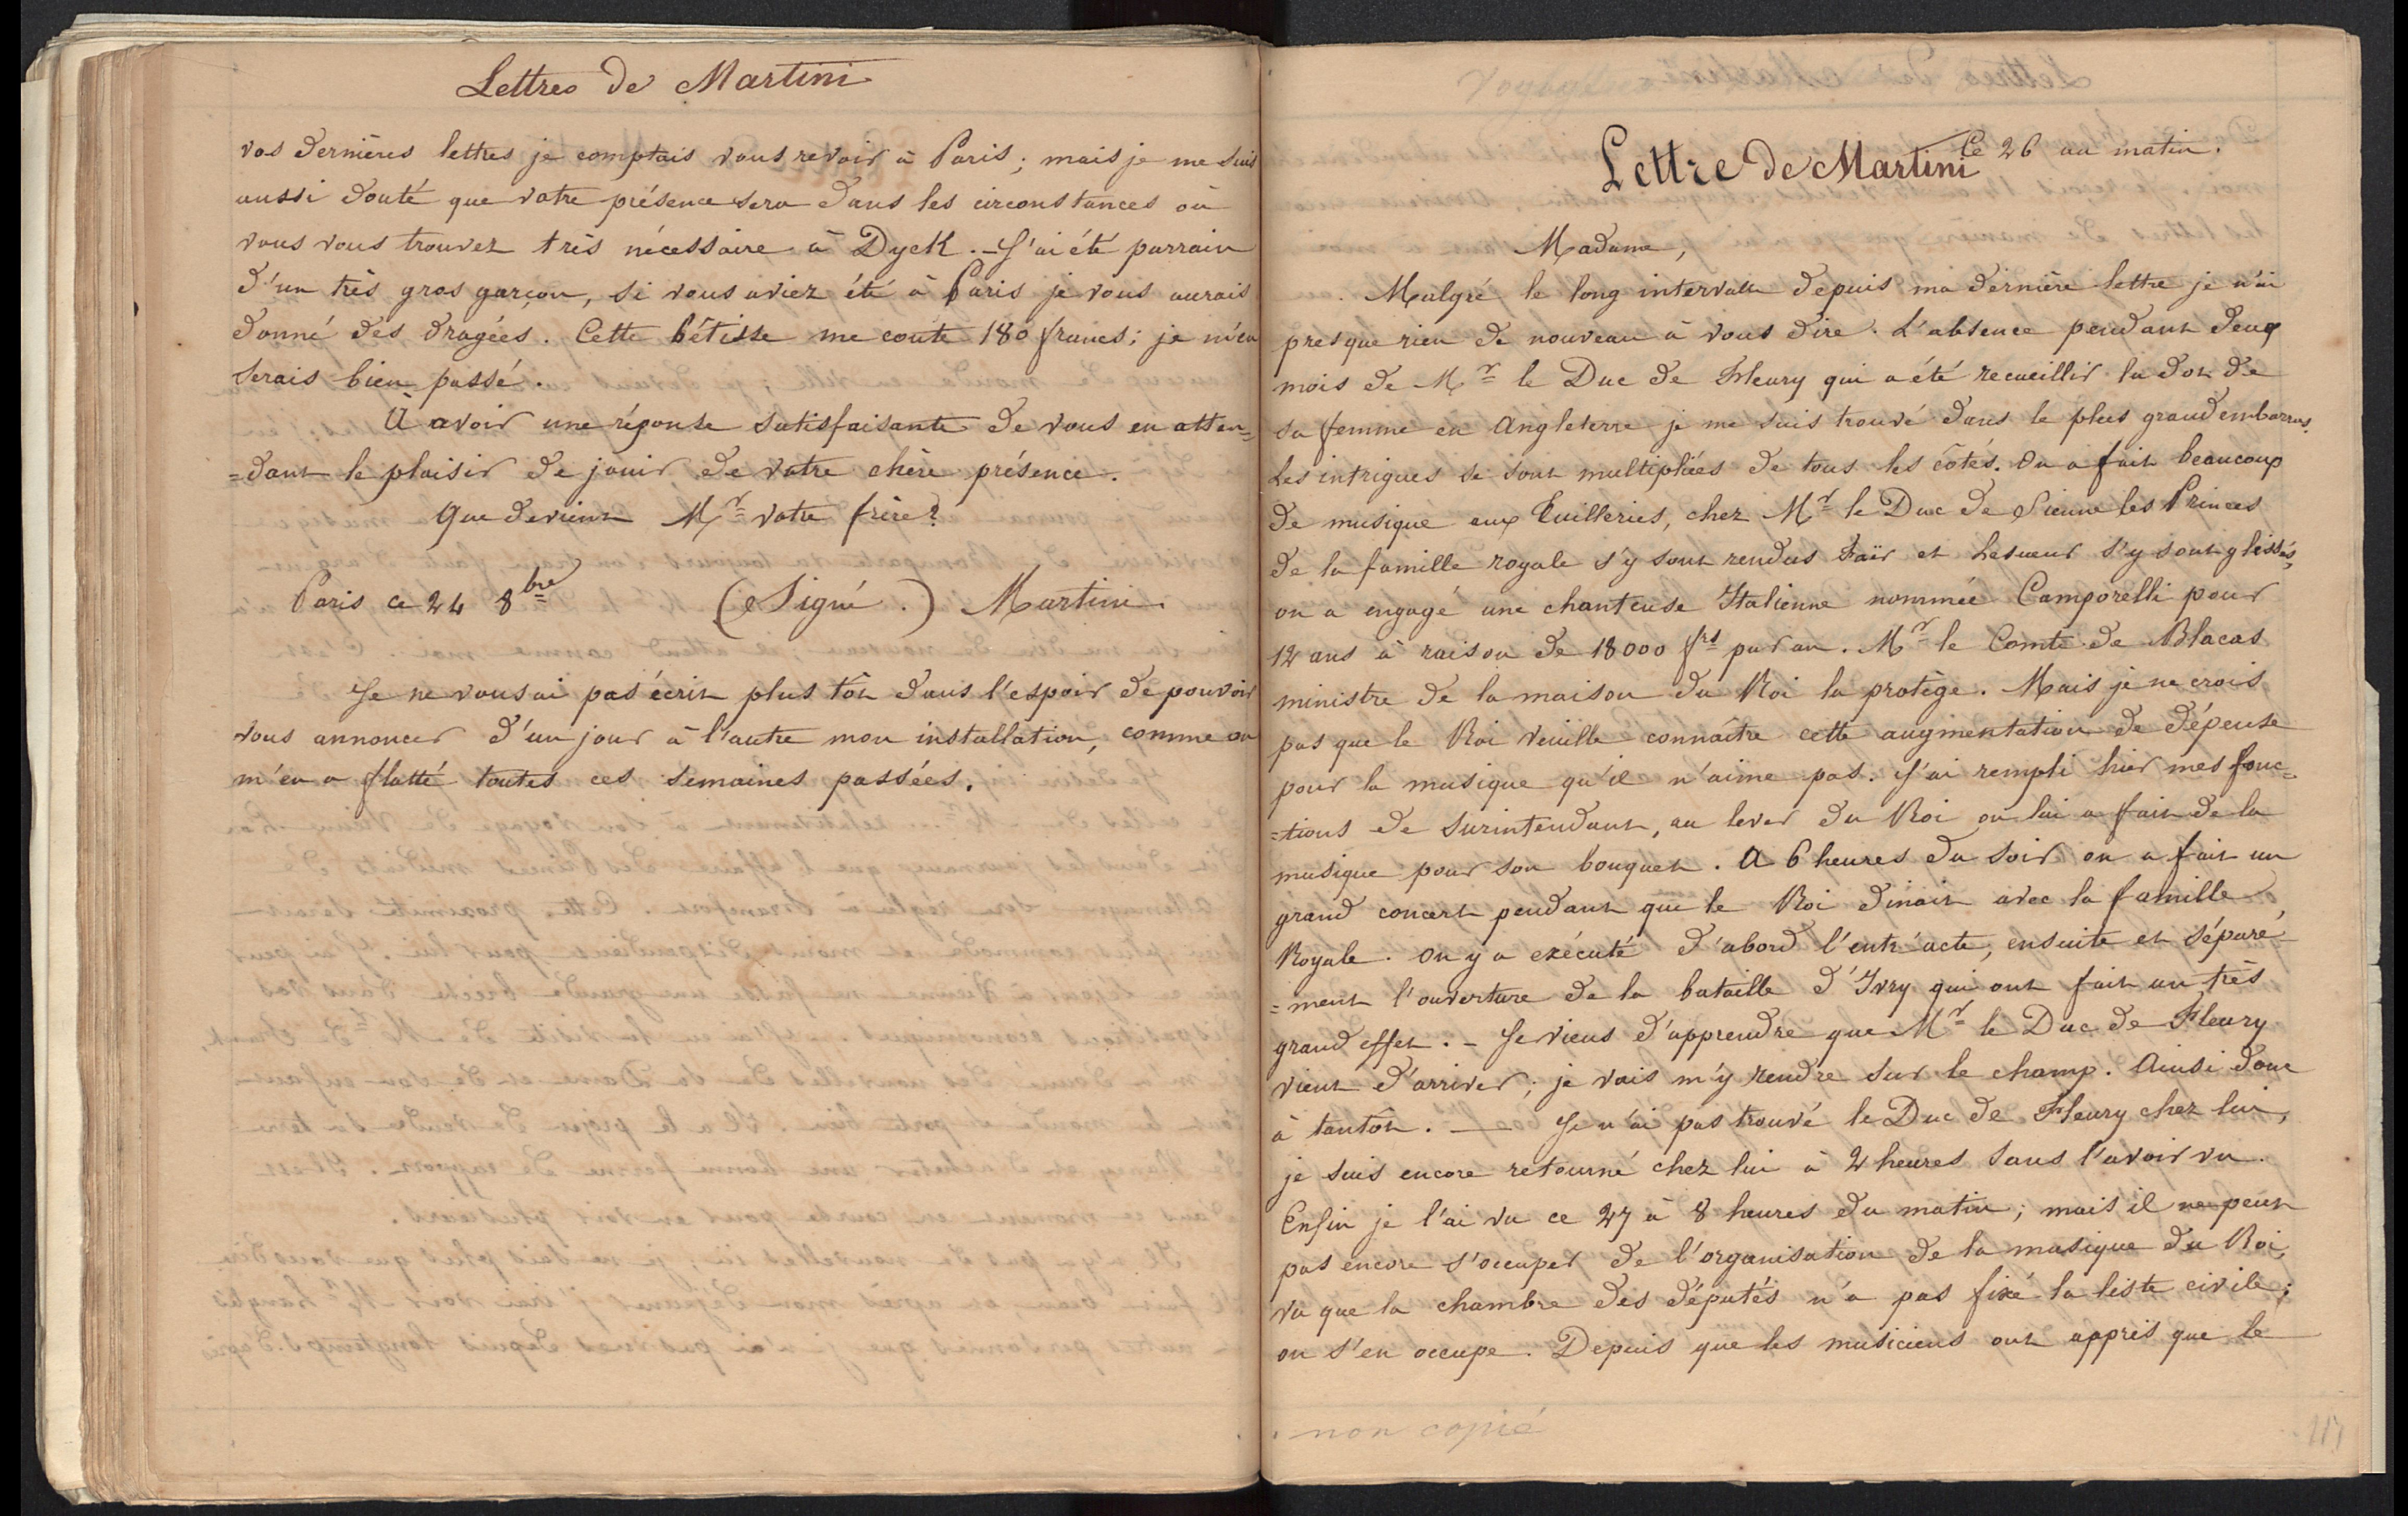 Lettres de Martini
vos dernières lettres je comptais vous revoir à Paris; mais je me suis
aussi douté que votre présence sera dans les circonstances où
vous vous trouvez très nécessaire à Dyck. – J'ai été parrain
d'un très gros garçon, si vous aviez été à Paris je vous aurais
donné des dragées. Cette bêtisse me coute 180 francs; je m'en
serais bien passé.
À avoir une réponse satisfaisante de vous en atten-
=dant le plaisir de jouir de votre chère présence.
Que devient Mr votre frère?
Paris ce 24 8bre (Signé.) Martini.
Je ne vous ai pas écrit plus tôt dans l'espoir de pouvoir
vous annoncer d'un jour à l'autre mon installation, comme on
m'en a flatté toutes ces semaines passées.
Ce 26 au matin.
Lettre de Martini
Madame,
Malgré le long intervalle depuis ma dernière lettre je n'ai
presque rien de nouveau à vous dire. L'absence pendant deux
mois de Mr le Duc de Fleury qui a été recueillir la dot de
sa femme en Angleterre je me suis trouvé dans le plus grand embarras.
Les intrigues se sont multipliées de tous les côtés. On a fait beaucoup
de musique aux Tuilleries, chez Mr le Duc de Pienne les Princes
de la famille royale s'y sont rendus Païr et Lesueur s'y sont glissés,
on a engagé une chanteuse Italienne nommée Camporelli pour
12 ans à raison de 18000 frs par an. Mr le Comte de Blacas
ministre de la maison du Roi la protège. Mais je ne crois
pas que le Roi veuille connaître cette augmentation de dépense
pour la musique qu'il n'aime pas. J'ai rempli hier mes fonc-
=tions de surintendant, au lever du Roi on lui a fait de la
musique pour son bouquet. A 6 heures du soir on a fait un
grand concert pendant que le Roi dinait avec la famille
Royale. On y a exécuté d'abord l'entr'acte, ensuite et séparé-
=ment l'ouverture de la bataille d'Ivry qui ont fait un très
grand effet. – Je viens d'apprendre que Mr le Duc de Fleury
vient d'arriver; je vais m'y rendre sur le champ. Ainsi donc
à tantôt. — Je n'ai pas trouvé le Duc de Fleury chez lui,
je suis encore retourné chez lui à 2 heures sans l'avoir vu.
Enfin je l'ai vu ce 27 à 8 heures du matin; mais il ne peut
pas encore s'occuper de l'organisation de la musique du Roi,
vu que la chambre des députés n'a pas fixé la liste civile;
on s'en occupe. Depuis que les musiciens ont appris que le
non copié
117